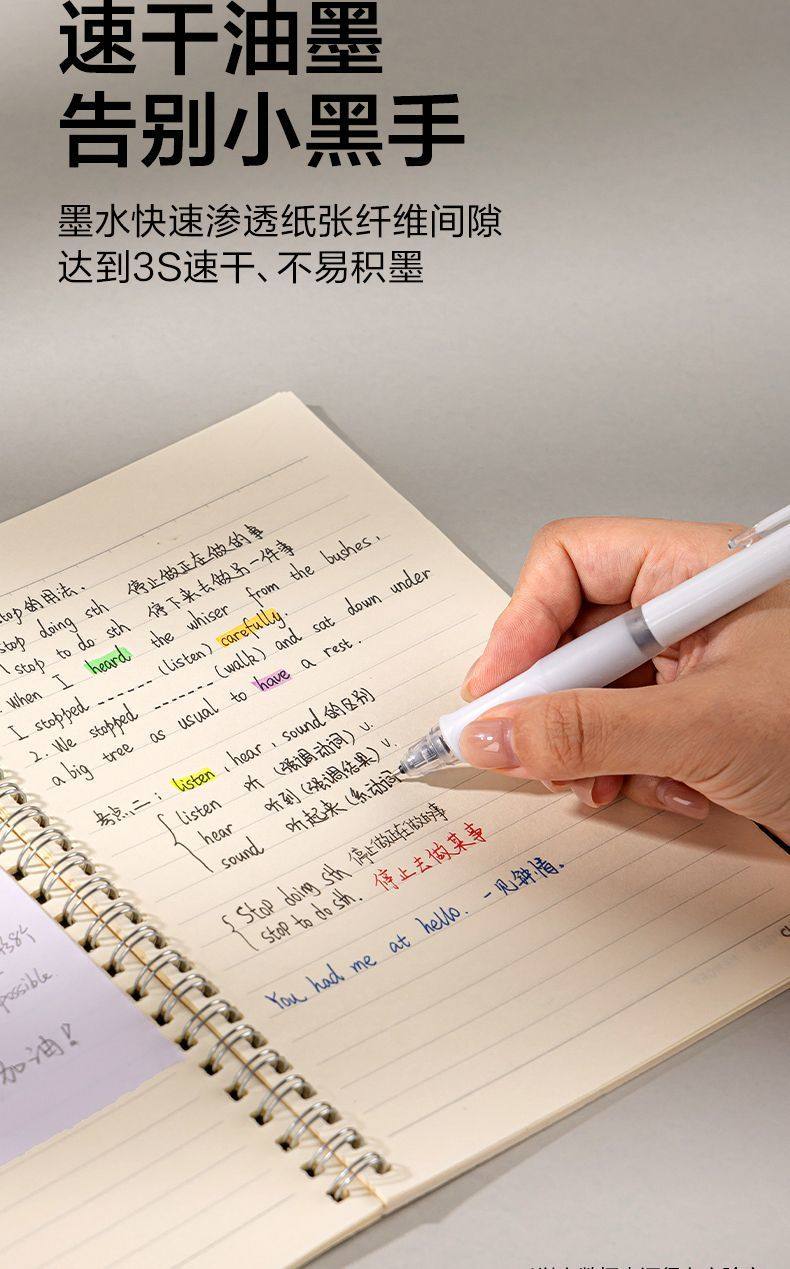 速干油墨
告别小黑手
墨水快速渗透纸张纤维间隙
达到3S速干、不易积墨
stop的用法.
stop doing sth 停止做正在做的事
stop to do sth 停下来去做另一件事
When I heard the whiser from the bushes,
I stopped ------ (listen) carefully.
2. We stopped ------ (walk) and sat down under
a big tree as usual to have a rest.
考点二: listen, hear, sound的区别
listen 听 (强调动词) v.
hear 听到 (强调结果) v.
sound 听起来 (系动词
Stop doing sth 停止做正在做的事
stop to do sth. 停止去做某事
You had me at hello. 一见钟情.
possible
加油!